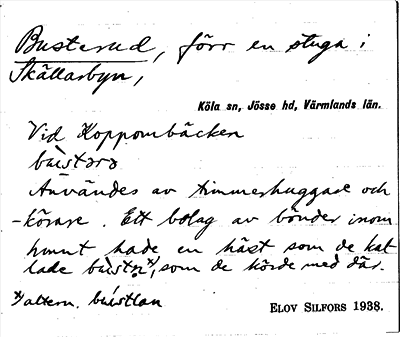 Busterud, förr en stuga i
Skällarbyn,
Köla sn, Jösse hd, Värmlands län.
Vid Koppombäcken
bùstərə
Användes av timmerhuggare och
-körare. Ett bolag av bönder inom
hmnt hade en häst som de kal
lade bùstn x), som de körde med där.
x) altern. bústlan
ELOV SILFORS 1938.